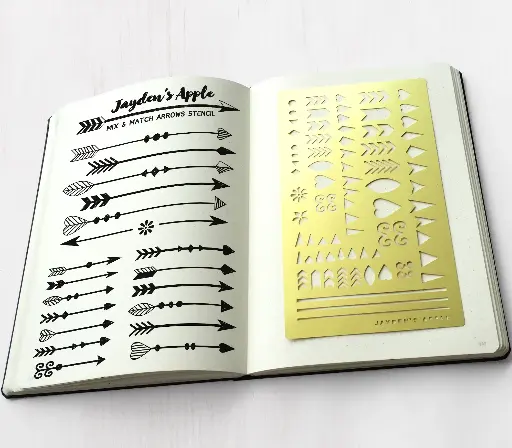 Jayden's Apple
MIX & MATCH ARROWS STENCIL
JAYDEN'S APPLE